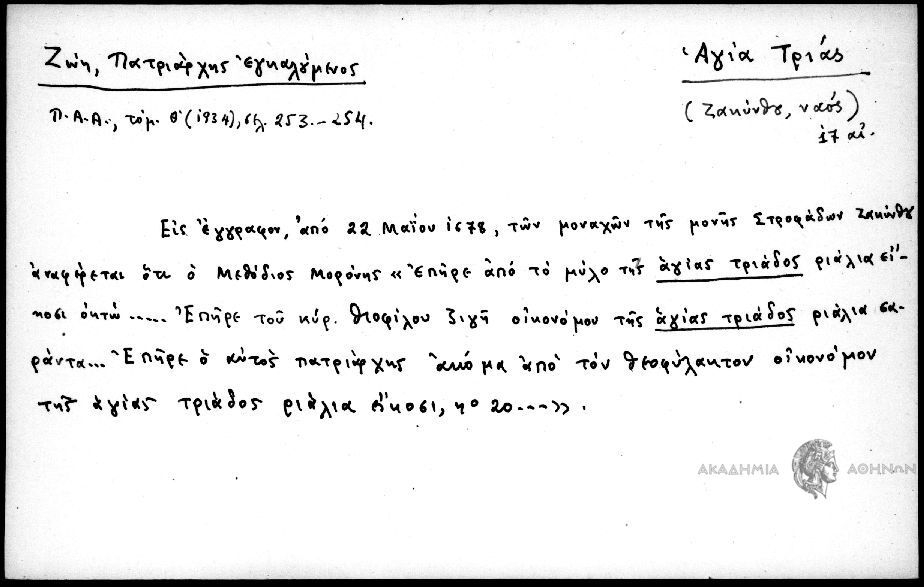 Ζώη, Πατριάρχης ἐγκαλούμενος
Ἁγία Τριάς
Π.Α.Α., τόμ. θ' (1934), σελ. 253.-254.
(Ζακύνθου, ναός)
17 αἰ.
Εἰς ἔγγραφον, ἀπό 22 Μαΐου 1678, τῶν μοναχῶν τῆς μονῆς Στροφάδων Ζακύνθου
ἀναφέρεται ὅτι ὁ Μεθόδιος Μορόνης «Ἐπῆρε ἀπό τό μύλο τῆς ἁγίας τριάδος ριάλια εἴ-
κοσι ὀκτώ..... Ἐπῆρε τοῦ κύρ. Θεοφίλου οἰκονόμου τῆς ἁγίας τριάδος ριάλια σα-
ράντα... Ἐπῆρε ὁ αὐτός πατριάρχης ἀκόμα ἀπό τόν θεοφύλακτον οἰκονόμον
τῆς ἁγίας τριάδος ριάλια εἴκοσι, νο 20....».
ΑΚΑΔΗΜΙΑ ΑΘΗΝΩΝ